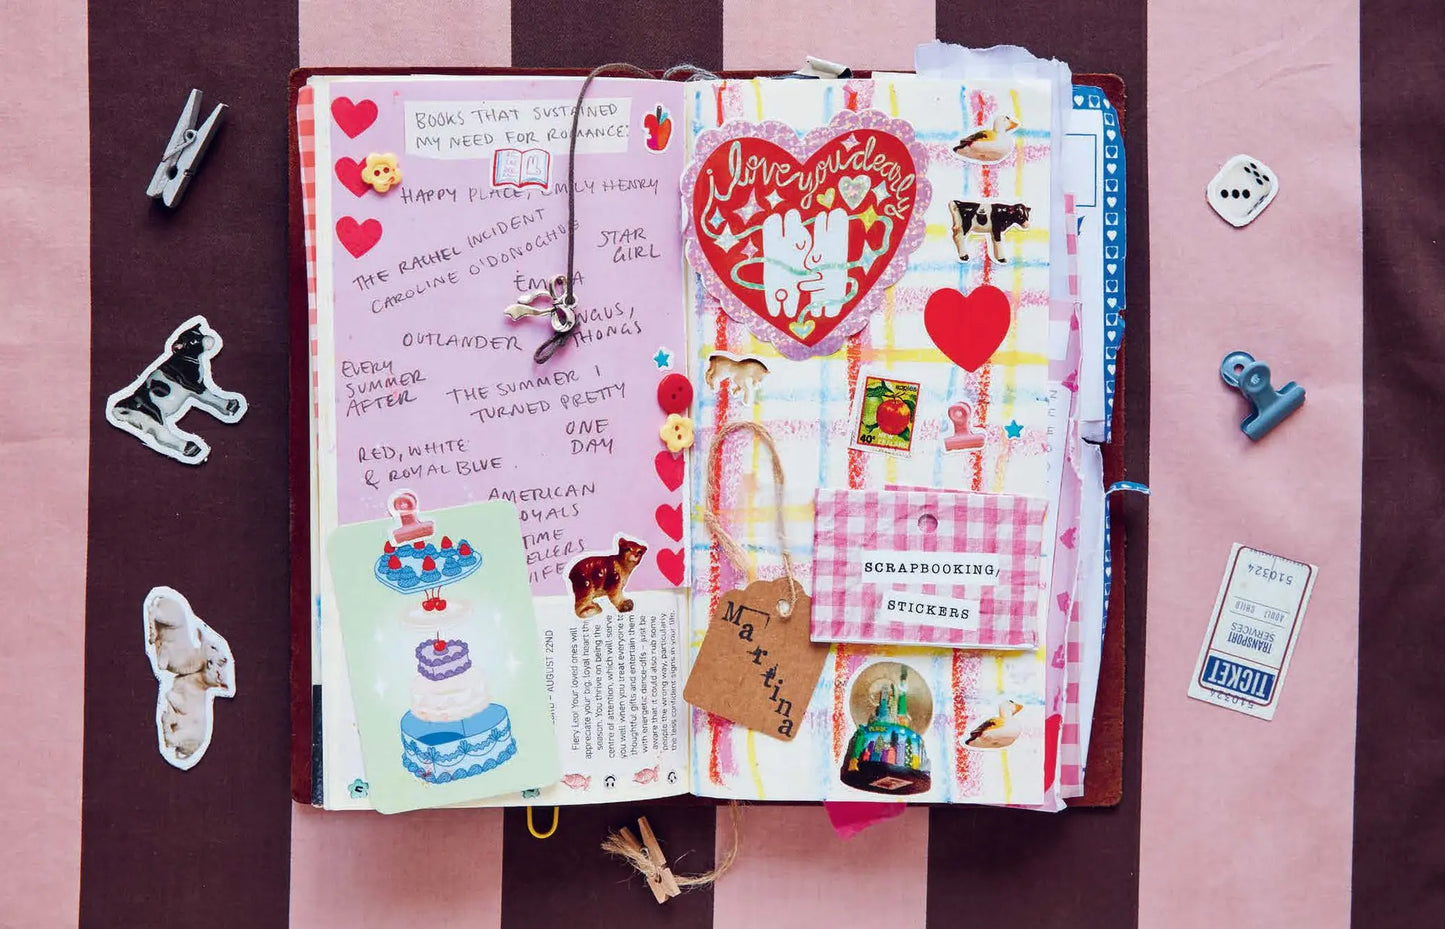 BOOKS THAT SUSTAINED
MY NEED FOR ROMANCE:
HAPPY PLACE, EMILY HENRY
THE RACHEL INCIDENT
CAROLINE O'DONOGHUE
STAR
GIRL
EMMA
OUTLANDER
NGUS,
THONGS
EVERY
SUMMER
AFTER
THE SUMMER I
TURNED PRETTY
ONE
DAY
RED, WHITE
& ROYAL BLUE
AMERICAN
OYALS
TIME
ELLERS
IFE
– AUGUST 22ND
Fiery Leo! Your loved ones will
appreciate your big, loyal heart th
season. You thrive on being the
centre of attention, which will serve
you well when you treat everyone to
thoughtful gifts and entertain them
with energetic dance-offs – just be
aware that it could also rub some
people the wrong way, particularly
the less confident signs in your life.
i love you dearly
40c
NEW
ZEALAND
SCRAPBOOKING/
STICKERS
Martina
TICKET
TRANSPORT
SERVICES
ADULT CHILD
510324
510324